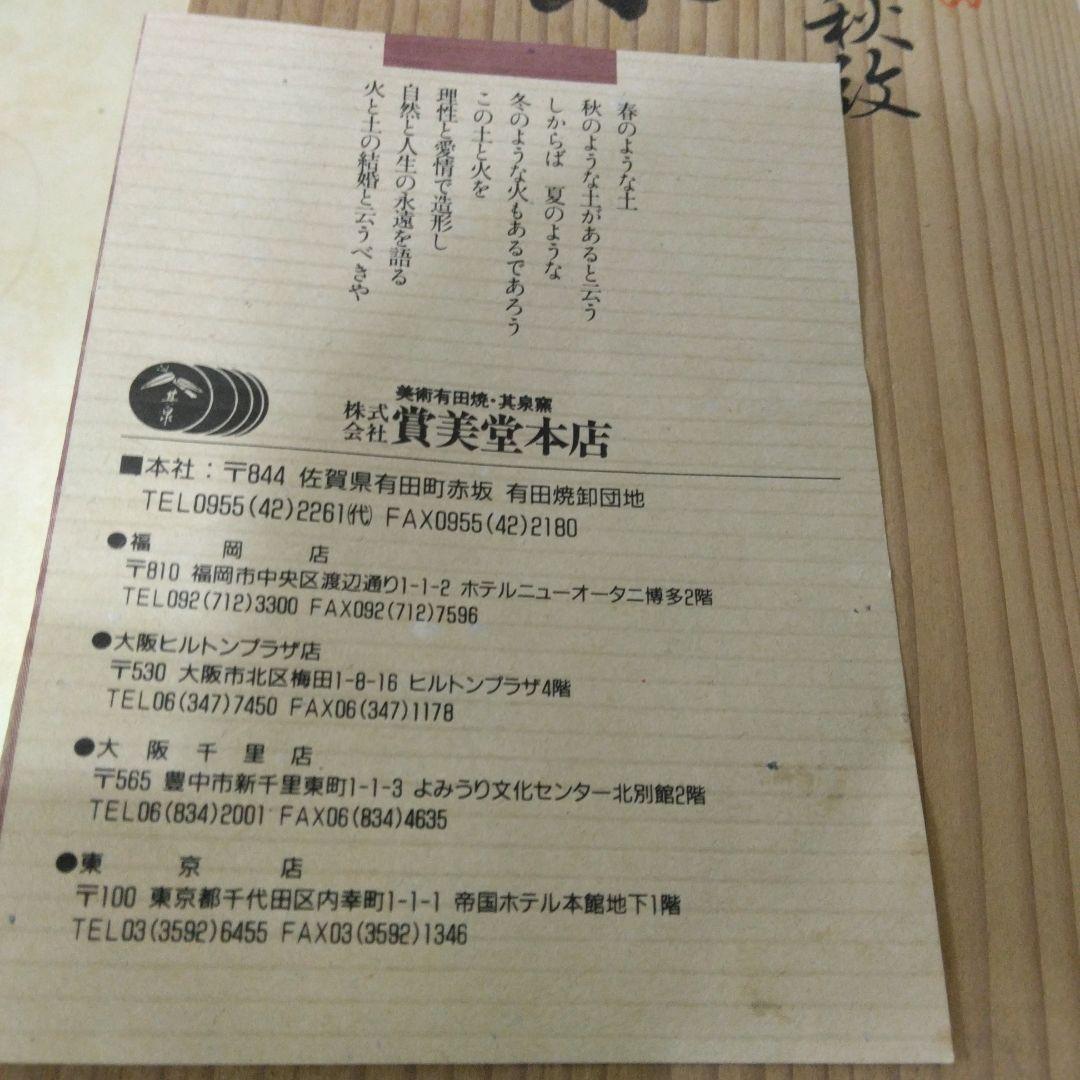 秋紋
春のような土
秋のような土があると云う
しからば 夏のような
冬のような火もあるであろう
この土と火を
理性と愛情で造形し
自然と人生の永遠を語る
火と土の結婚と云うべきや
其泉
美術有田焼・其泉窯
株式会社 賞美堂本店
■本社：〒844 佐賀県有田町赤坂 有田焼卸団地
TEL0955(42)2261㈹ FAX0955(42)2180
●福岡店
〒810 福岡市中央区渡辺通り1-1-2 ホテルニューオータニ博多2階
TEL092(712)3300 FAX092(712)7596
●大阪ヒルトンプラザ店
〒530 大阪市北区梅田1-8-16 ヒルトンプラザ4階
TEL06(347)7450 FAX06(347)1178
●大阪千里店
〒565 豊中市新千里東町1-1-3 よみうり文化センター北別館2階
TEL06(834)2001 FAX06(834)4635
●東京店
〒100 東京都千代田区内幸町1-1-1 帝国ホテル本館地下1階
TEL03(3592)6455 FAX03(3592)1346